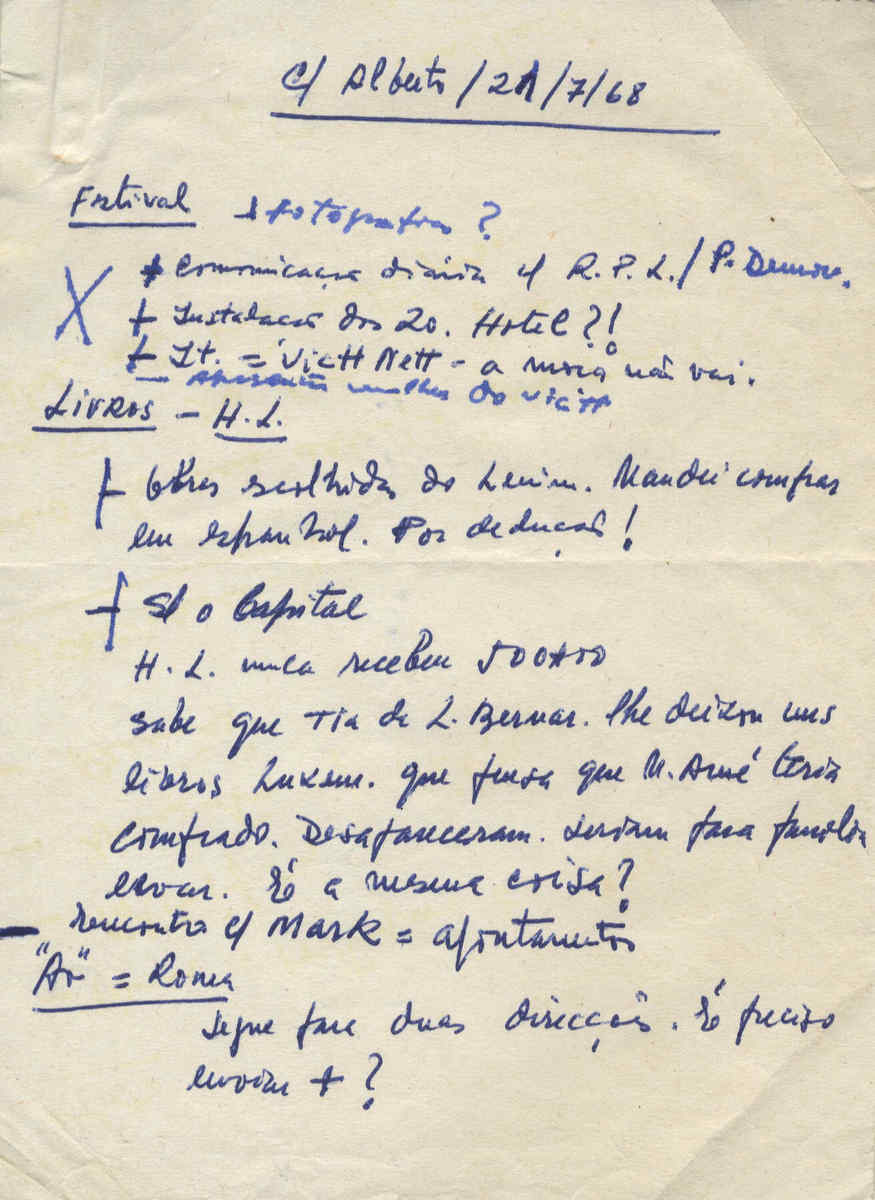 c/ Alberto / 21/7/68
Festival + fotografias ?
+ Comunicação diária c/ R.P.L. / P.
+ Instalação dos 20. Hotel ?!
+ It. = Viet Nett - a moça não vai.
mulher do Viett
LIVROS - H.L.
+ Obras escolhidas do Lenine. Mandei comprar
em espanhol. Por dedução !
+ S/ o Capital
H.L. nunca recebeu 500$00
sabe que Tia de L. Bernar. lhe deixou uns
libros Luxem. que pensa que M. Amé teria
comprado. Desapareceram. Seriam para família
enviar. É a mesma coisa ?
- Encontro c/ Mark = apontamentos
"Ao" = Roma
Segue para duas direcções. É preciso
enviar + ?